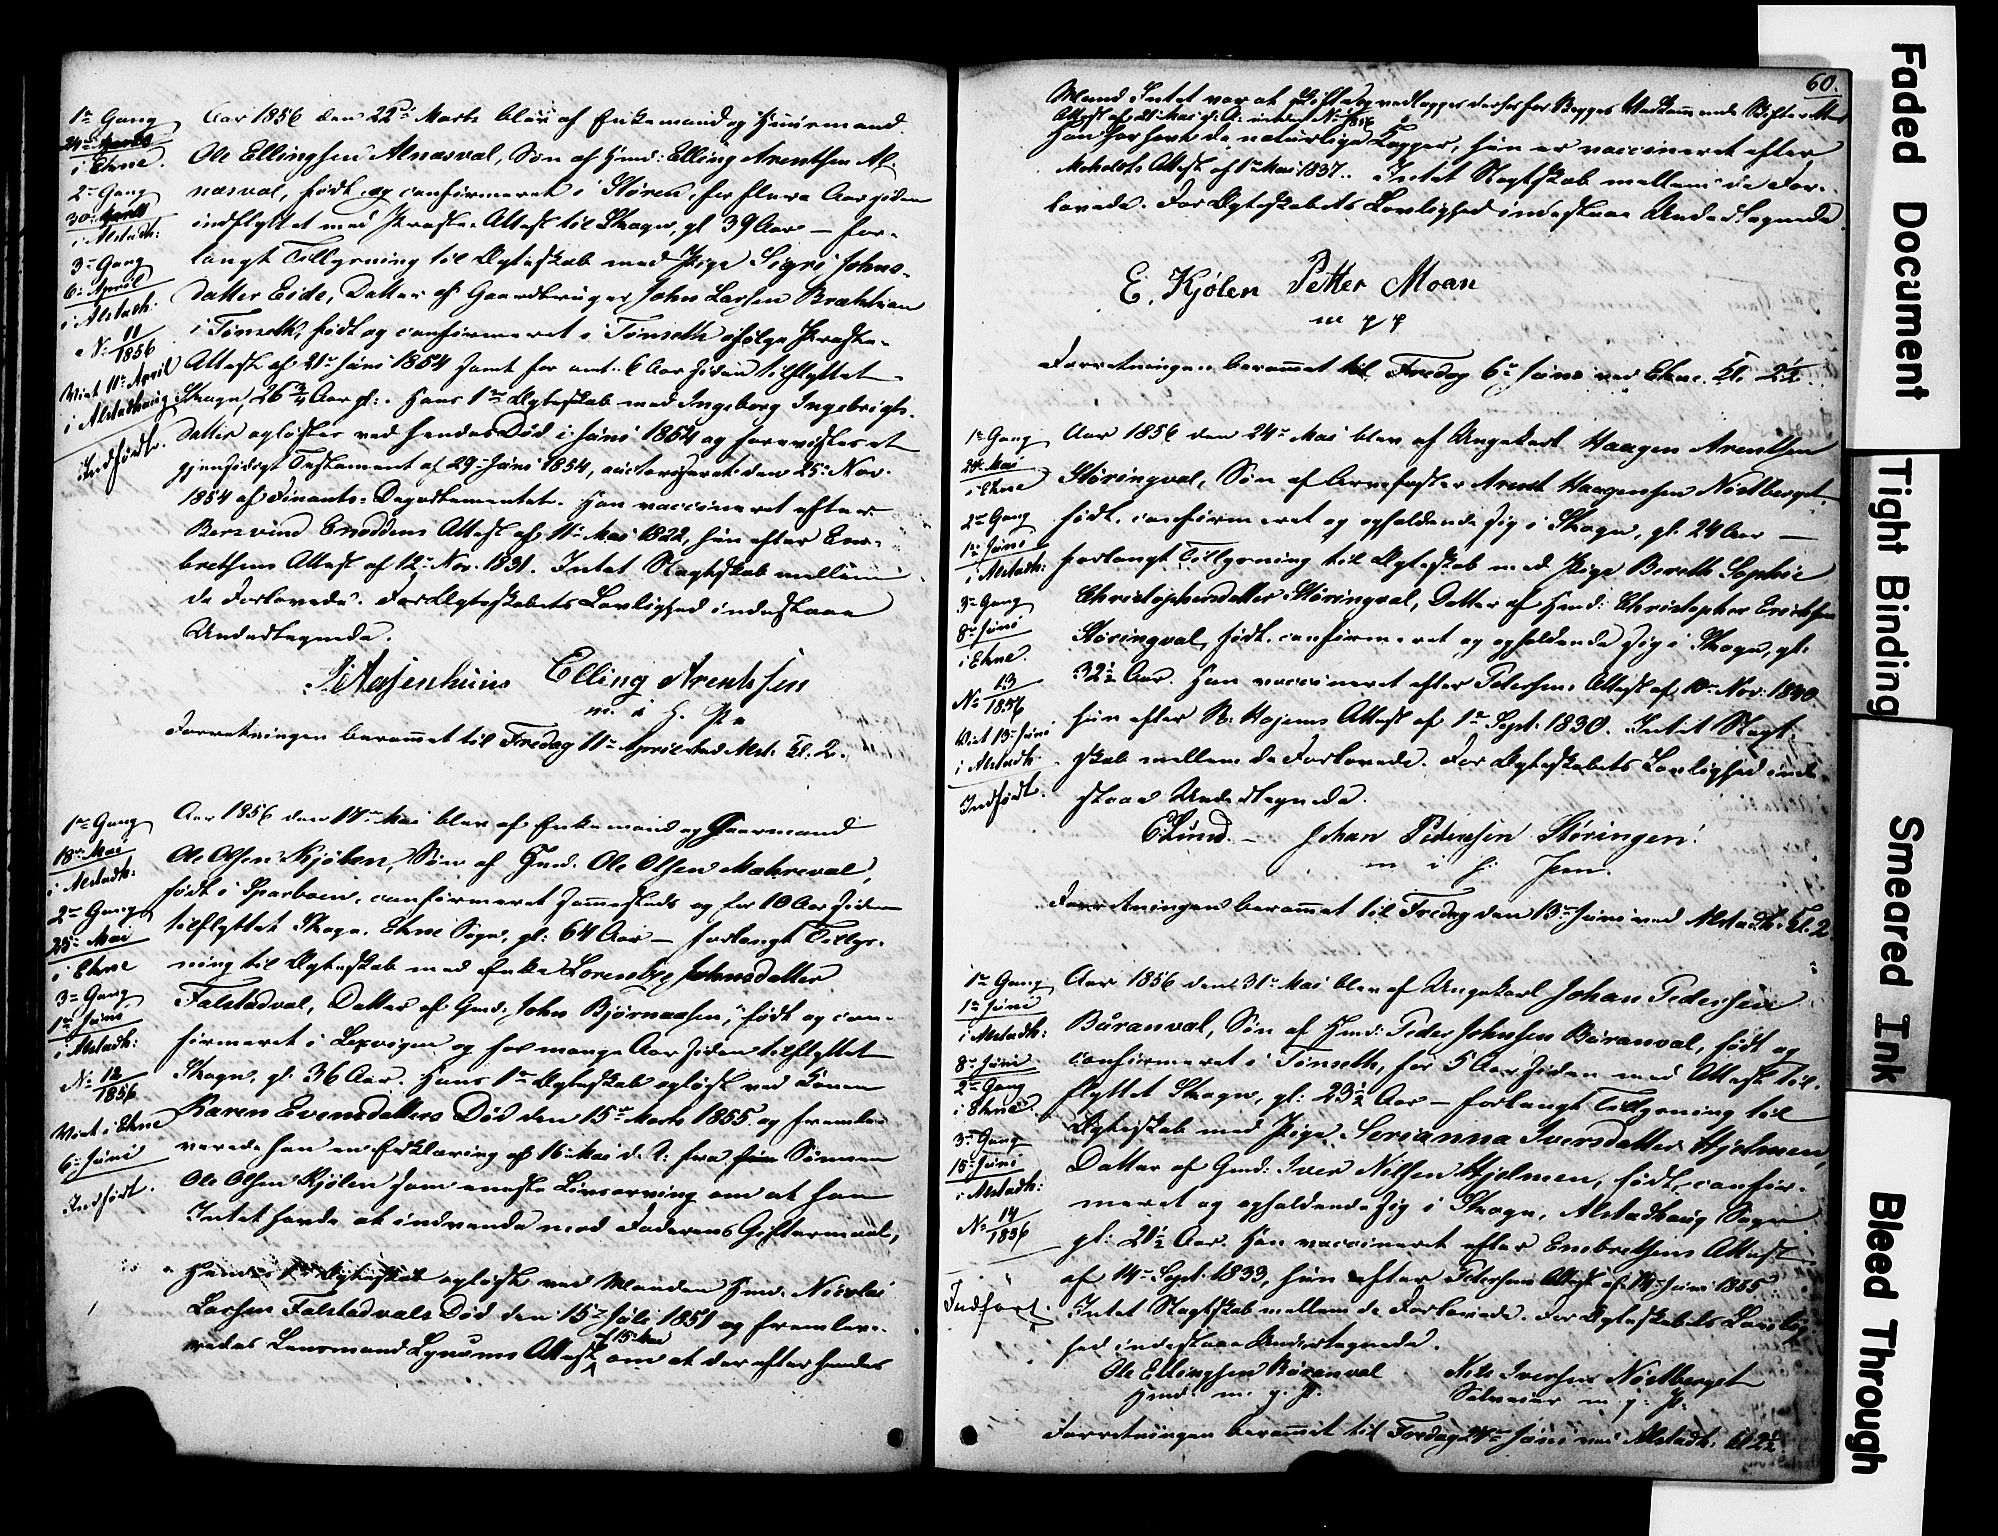 1ste Gang
24de Marts
i Ekne.
2den Gang
30te Marts
i Alstadh:
3die Gang
6te April
i Alstadh.
N: 11/1856
Viet 11te April
i Alstadhaug
Indført.
Aar 1856 den 22de Marts blev af Enkemand og Huusmand
Ole Ellingsen Alnæsval, Søn af Hmd: Elling Arentsen Al-
næsval, født og confirmeret i Støren, for flere Aar siden
indflyttet med Præste-Attest til Skogn, gl 39 Aar — for-
langt Tillysning til Ægteskab med Pige Sigri Johns-
datter Eide, Datter af Gaardbruger John Larsen
i Tønseth, født og confirmeret i Tønseth ifølge Præste-
Attest af 21de Juni 1854 samt for omt. 6 Aar siden tilflyttet
Skogn, 26 3/4 Aar gl:. Hans 1ste Ægteskab med Ingeborg Ingebrigts-
datter opløstes ved hendes Død i Juni 1854 og forevistes et
gjensidigt Testament af 29de Juni 1854, auctoriseret den 25de Nov.
1854 af Finants-Departementet. Han vaccineret efter
Attest af 11te Mai 1822, hun efter Em-
brethsens Attest af 12te Nov. 1831. Intet Slægtskab mellem
de Forlovede. For Ægteskabets Lovlighed indestaae
Undertegnede.
Elling Arentssen
m. i H. P.
Forretningen berammet til Fredag 11te April ved Alst. Kl. 2.
1ste Gang
18de Mai
i Alstadh:
2den Gang
25de Mai
i Ekne
3die Gang
1ste Juni
i Alstadh:
N: 12/1856
Viet i Ekne
6te Juni
Indført.
Aar 1856 den 17de Mai blev af Enkemand og Gaarmand
Ole Olsen Kjølen, Søn af Hmd. Ole Olsen Mæhreval,
født i Sparboen, confirmeret sammesteds og for 10 Aar siden
tilflyttet Skogn, Ekne Sogn, gl: 64 Aar — forlangt Tillys-
ning til Ægteskab med Enke Johnsdatter
Falstadval, Datter af Gmd. John Bjørnaasen, født og con-
firmeret i Lexvigen og for mange Aar siden tilflyttet
Skogn, gl: 36 Aar. Hans 1ste Ægteskab opløst ved Konen
Karen Evensdatters Død den 15de Marts 1855 og fremle-
verede han en Erklæring af 16de Mai d. A: fra Sønnen
Ole Olsen Kjølen som eneste Livsarving om at han
Intet havde at indvende mod Faderens Giftermaal,
Hendes 1ste Ægteskab opløst ved Manden Hmd. Nicolai
Larsen Falstadvals Død den 15de Juli 1851 og fremlev-
redes Lensmand Lynums Attest af 15 Mai om at der efter hendes
60.
Mand Intet var at skifte
Attest af 21 Mai d. A. under N: 1856
Han har havt de naturlige Kopper, hun er vaccineret efter
Attest af 1ste Mai 1837. Intet Slægtskab mellem de For-
lovede. For Ægteskabets Lovlighed indestaae Undertegnede
E. Kjølen Petter Moan
m p p
Forretningen berammet til Fredag 6te Juni ved Ekne. Kl. 2 1/2.
1ste Gang
24de Mai
i Ekne
2den Gang
1ste Juni
i Alstadh:
3die Gang
8de Juni
i Ekne.
N: 13/1856
Viet 13de Juni
i Alstadh.
Indført.
Aar 1856 den 24de Mai blev af Ungekarl Haagen Arentsen
Støringval, Søn af Arvefæster Arent Haagensen Nøstberget
født, confirmeret og opholdende sig i Skogn, gl. 24 Aar —
forlangt Tillysning til Ægteskab med Pige Bereth Sophie
Christophersdatter Støringval, Datter af Hmd: Christopher Erichsen
Støringval, født, confirmeret og opholdende sig i Skogn, gl.
32 1/2 Aar. Han vaccineret efter Petersens Attest af 10de Nov. 1840
hun efter N: Hojems Attest af 1ste Sept. 1830. Intet Slægt-
skab mellem de Forlovede. For Ægteskabets Lovlighed inde-
staae Undertegnede.
E Lund. — Johan Pederssen Støringen.
m i h: Pen.
Forretningen berammet til Fredag den 13de Juni ved Alstadh. Kl. 2
1ste Gang
1ste Juni
i Alstadh:
8de Juni
2den Gang
i Ekne.
3die Gang
15de Juni
i Alstadh:
N: 14/1856
Indført.
Aar 1856 den 31te Mai blev af Ungekarl Johan Pedersen
Båranval, Søn af Hmd: Peder Johnsen Båranval, født og
confirmeret i Tønseth, for 5 Aar siden med Attest til-
flyttet Skogn, gl: 23 1/2 Aar — forlangt Tillysning til
Ægteskab med Pige Serianna Iversdatter Hjelmen,
Datter af Gmd: Iver Nilsen Hjelmen, født, confir-
meret og opholdende sig i Skogn, Alstadhaug Sogn
gl: 21 1/2 Aar. Han vaccineret efter Embrethsens Attest
af 14de Sept. 1833, hun efter Petersens Attest af 14de Juni 1855
Intet Slægtskab mellem de Forlovede. For Ægteskabets Lovlig-
hed indestaae Undertegnede.
Ole Ellingsen Båranval Nils Iversen Nøstberget
Hmd. m. p. P. Selveier m. p. P.
Forretningen berammet til Fredag 27de Juni ved Alstadh. kl 2 1/2.
Faded Document
Tight Binding
Smeared Ink
Bleed Through